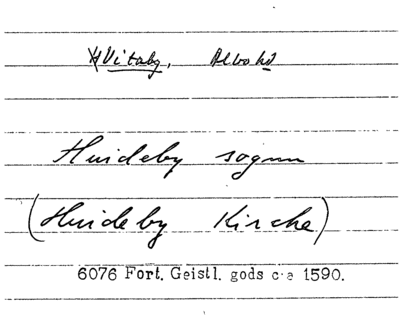 Vitaby, Albo hd
Huideby sognn
(Huideby Kirche)
6076 Fort. Geistl. gods c:a 1590.